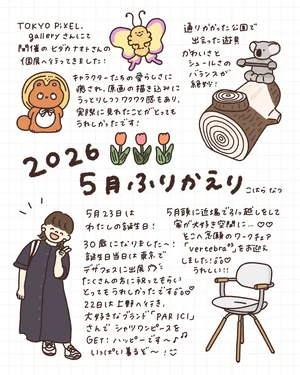 TOKYO PiXEL.
gallery さんにて
開催の ヒダカナオトさんの
個展へ行ってきました!
キャラクターたちの愛らしさに
癒され、原画の描き込みに
うっとりしつつワクワク感もあり、
実際に見れたことがとっても
うれしかったです!
通りがかった公園で
出会った遊具
かわいさと
シュールさの
バランスが
絶妙!
2026
5月ふりかえり
こはら なつ
5月23日は
わたしの誕生日!
30歳になりました〜!
誕生日当日は東京で
デザフェスに出展
たくさんの方に祝ってもらい
とってもうれしかったです
22日は上野へ行き、
大好きなブランド「PAR ICI」
さんで シャツワンピースを
GET! ハッピーです〜♪
いっぱい着るぞ〜!
5月頭に近場で引っ越しをして
家が大好き空間に…♡♡
そこへ念願のワークチェア
「vertebra03」をお迎え
しました!
うれしい!!